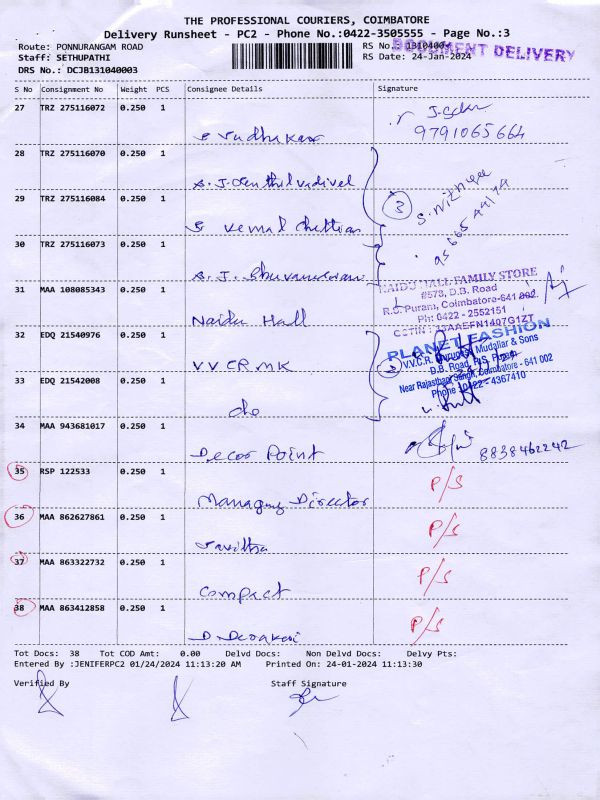 THE PROFESSIONAL COURIERS, COIMBATORE
Delivery Runsheet - PC2 - Phone No.:0422-3505555 - Page No.:3
Route: PONNURANGAM ROAD
RS No.: 1310400
DOCUMENT DELIVERY
Staff: SETHUPATHI
RS Date: 24-Jan-2024
DRS No.: DCJB131040003
S No Consignment No Weight PCS Consignee Details Signature
27 TRZ 275116072 0.250 1
9791065664
28 TRZ 275116070 0.250 1
29 TRZ 275116084 0.250 1
3
30 TRZ 275116073 0.250 1
31 MAA 108085343 0.250 1 Naidu Hall
NAIDU HALL FAMILY STORE
#578, D.B. Road
R.S. Puram, Coimbatore-641 002.
Ph: 0422 - 2552151
GSTIN : 33AAEFN1407G1ZT
32 EDQ 21540976 0.250 1 V.V CR MK
PLANET FASHION
V.V.C.R. Murugesa Mudaliar & Sons
D.B. Road, R.S. Puram
Near Rajasthani Sangh, Coimbatore - 641 002
Phone : 0422 - 4367410
33 EDQ 21542008 0.250 1 do
34 MAA 943681017 0.250 1 Decor Point
8838462242
35 RSP 122533 0.250 1 Managing Director P/S
36 MAA 862627861 0.250 1 Savithra P/S
37 MAA 863322732 0.250 1 Compact P/S
38 MAA 863412858 0.250 1 P/S
Tot Docs: 38 Tot COD Amt: 0.00 Delvd Docs: Non Delvd Docs: Delvy Pts:
Entered By :JENIFERPC2 01/24/2024 11:13:20 AM Printed On: 24-01-2024 11:13:30
Verified By Staff Signature